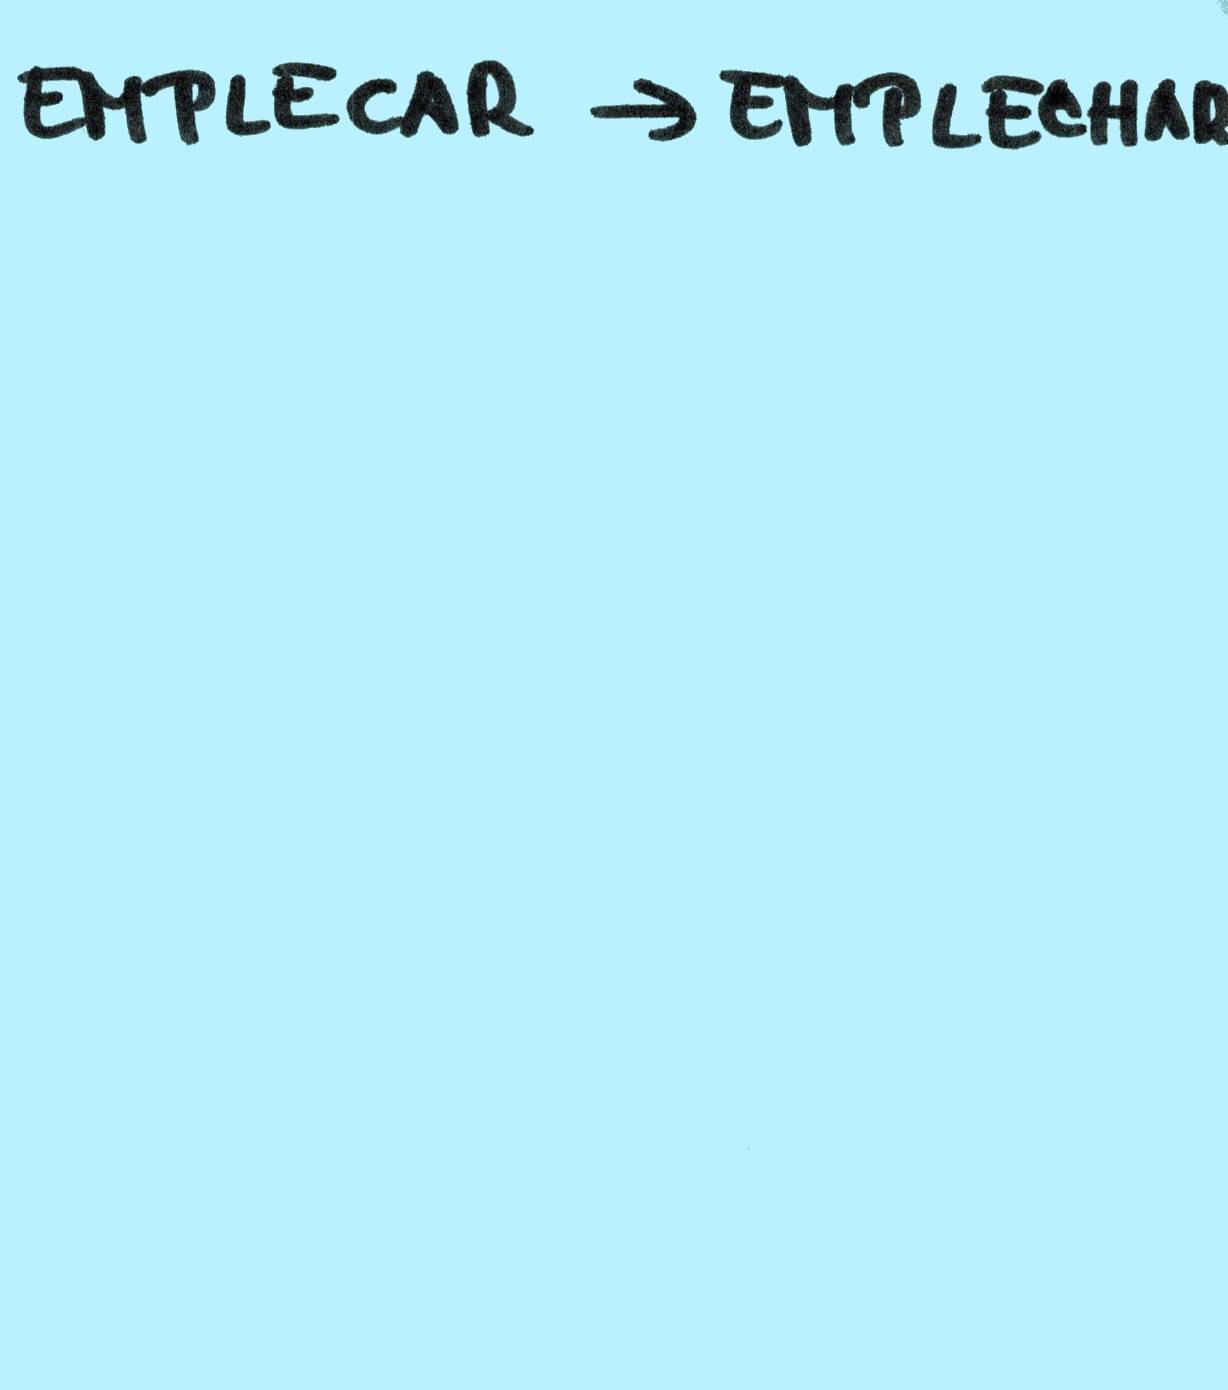 EMPLECAR → EMPLECHAR